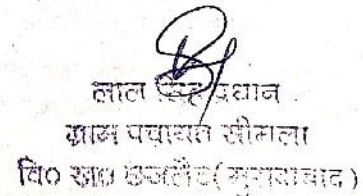 लाल सिंह प्रधान
ग्राम पंचायत सीगला
वि० ख० छजलैट (मुरादाबाद)